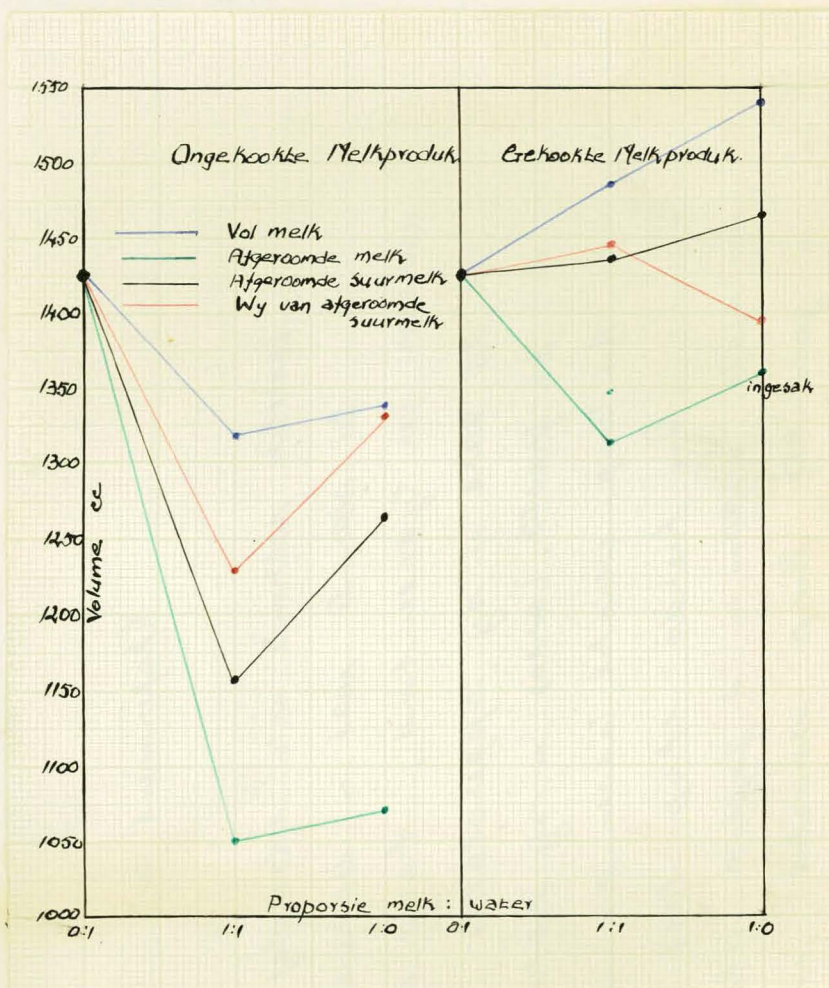 1550
1500
1450
1400
1350
1300
1250
1200
1150
1100
1050
1000
Volume cc
Ongekookte Melkproduk
Gekookte Melkproduk.
Vol melk
Afgeroomde melk
Afgeroomde suurmelk
Wy van afgeroomde
suurmelk
ingesak
Proporsie melk : water
0:1 1:1 1:0 0:1 1:1 1:0